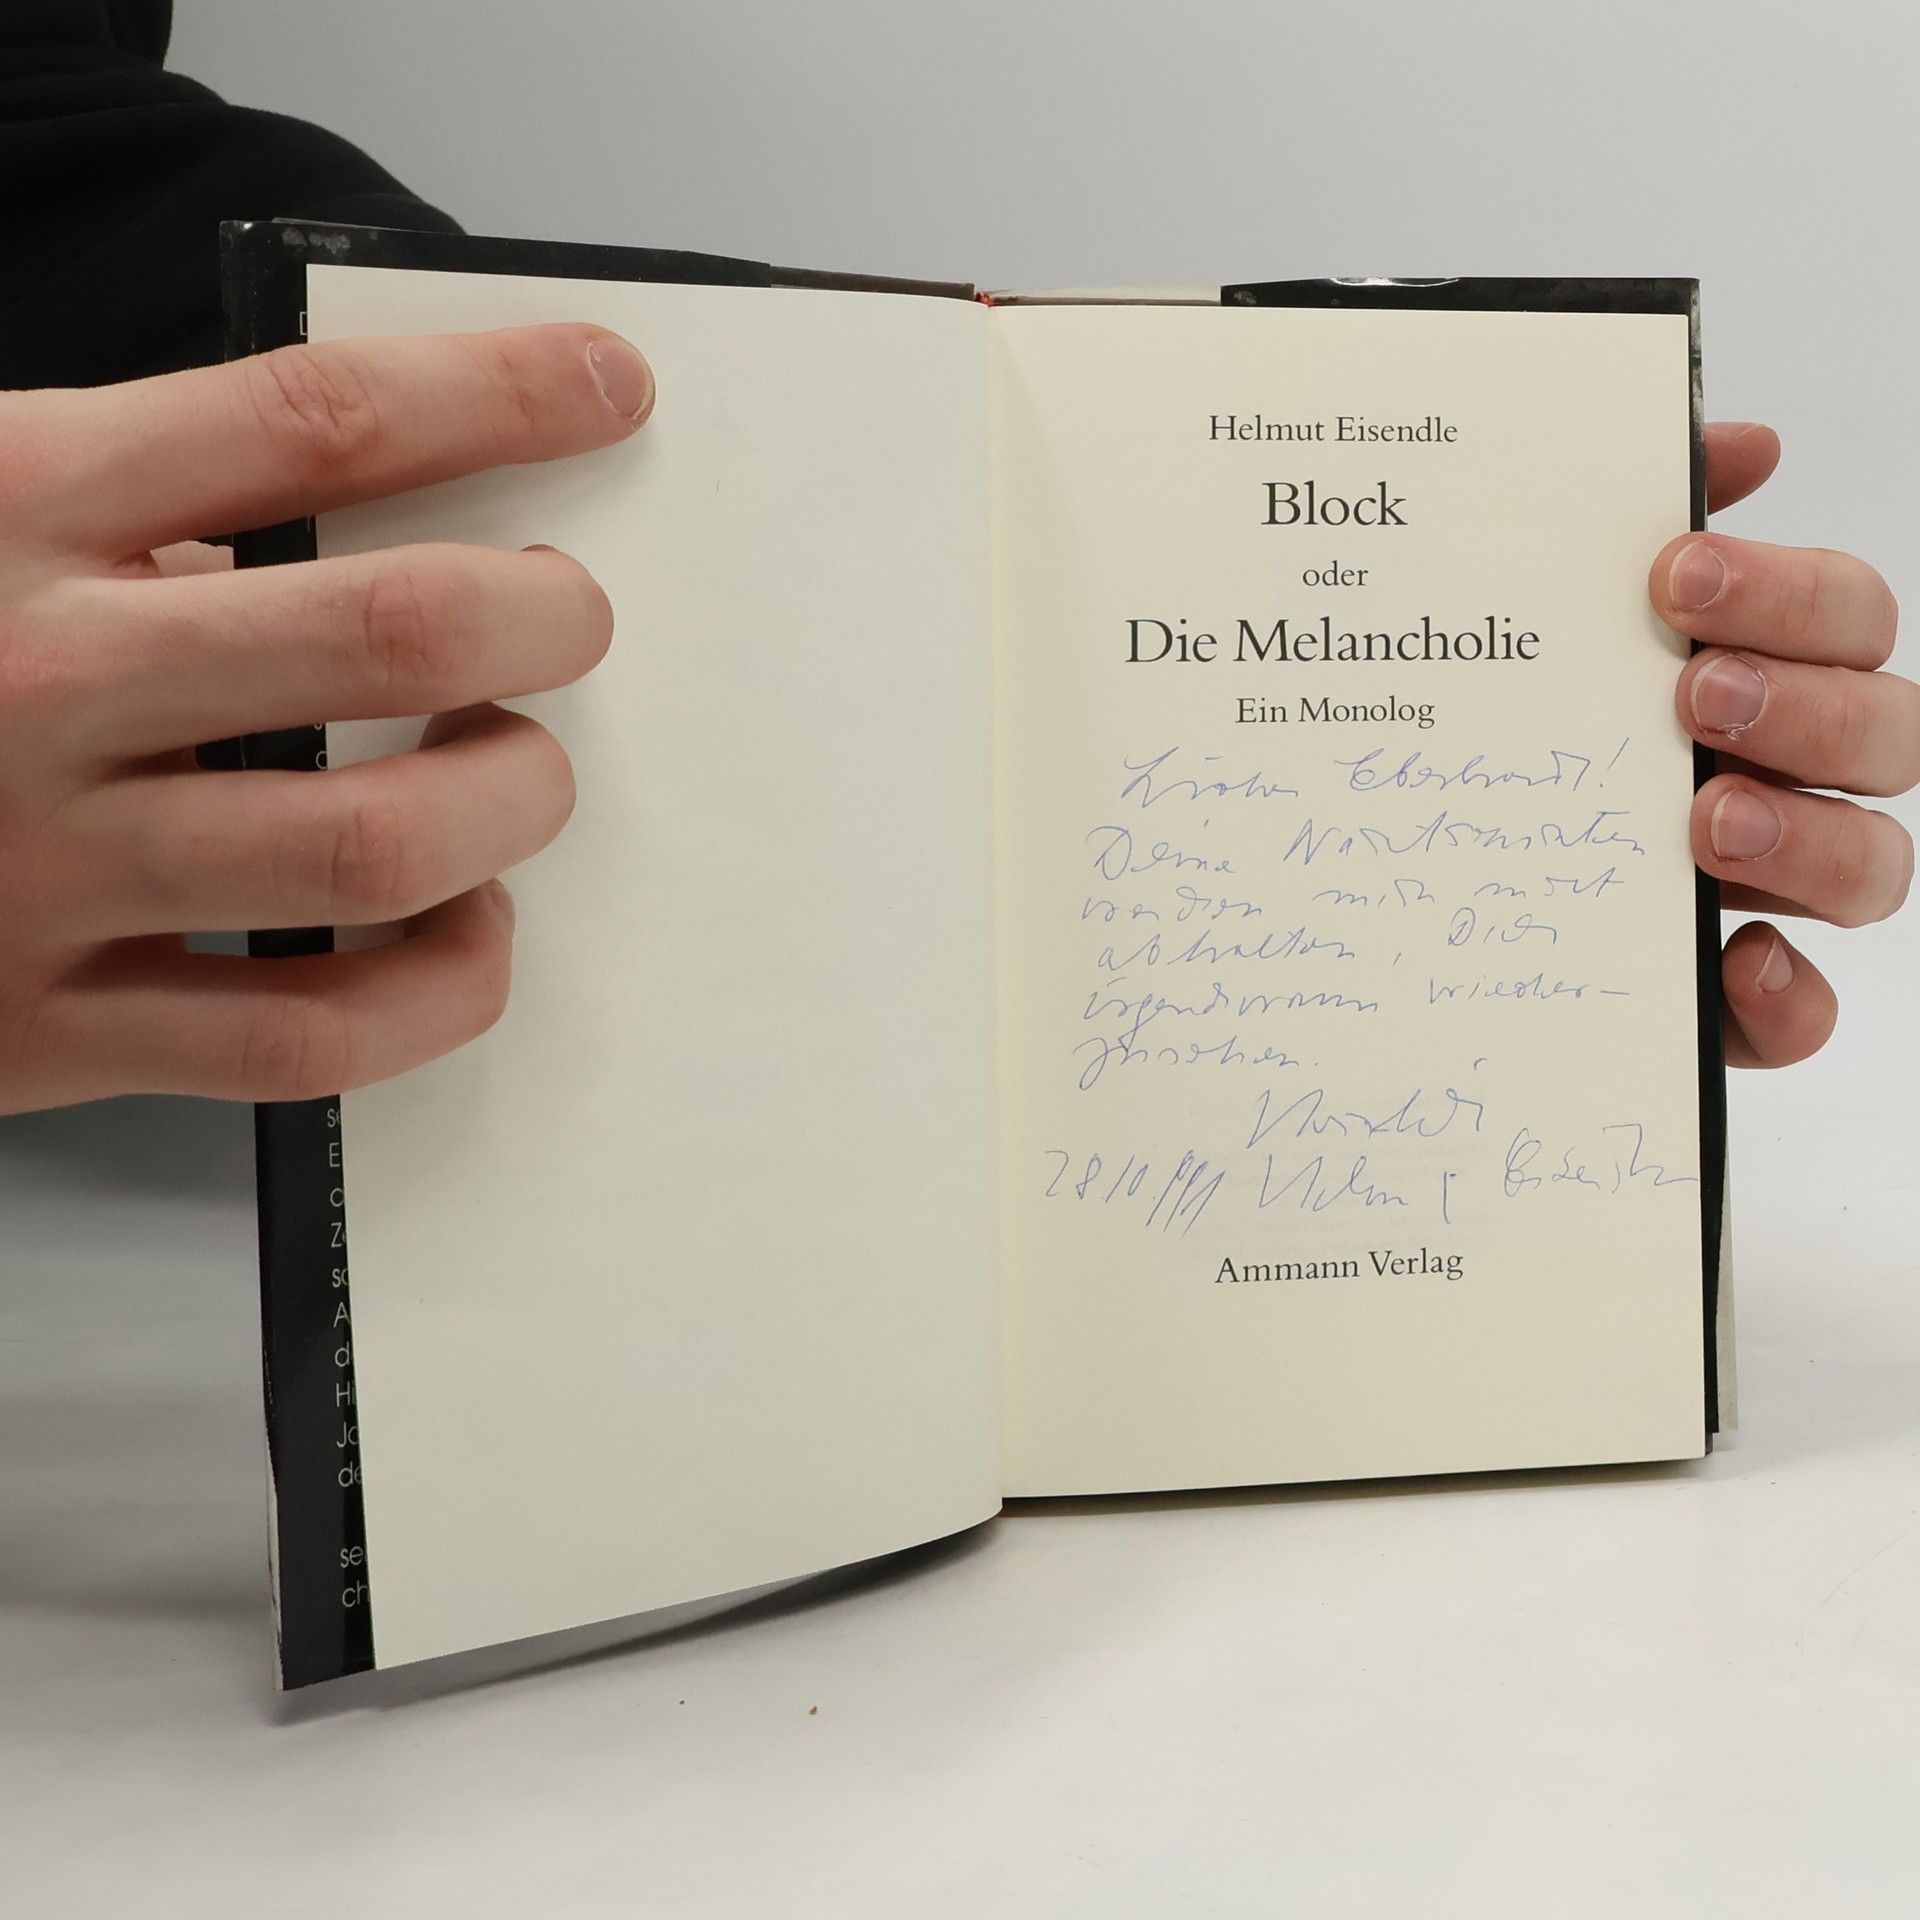 Helmut Eisendle
Block
oder
Die Melancholie
Ein Monolog
Lieber Eberhardt!
Deine
werden mich nicht
abhalten, Dich
irgendwann wieder-
zusehen.
Herzlich
28.10.1991 Helmut Eisendle
Ammann Verlag
se
E
Z
A
d
Hi
Jo
de
se
ch